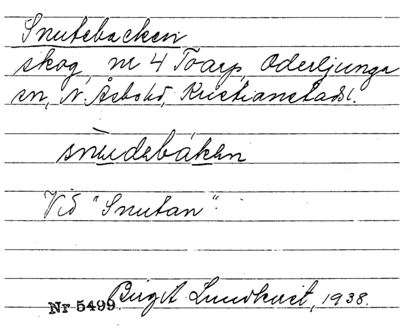 Snutebacken
skog, nr 4 Toarp, Oderljunga
sn, N. Åsbohd, Kristianstads l.
snudebáken
Vid "Snutan".
Nr 5499 Birgit Lundkvist, 1938.